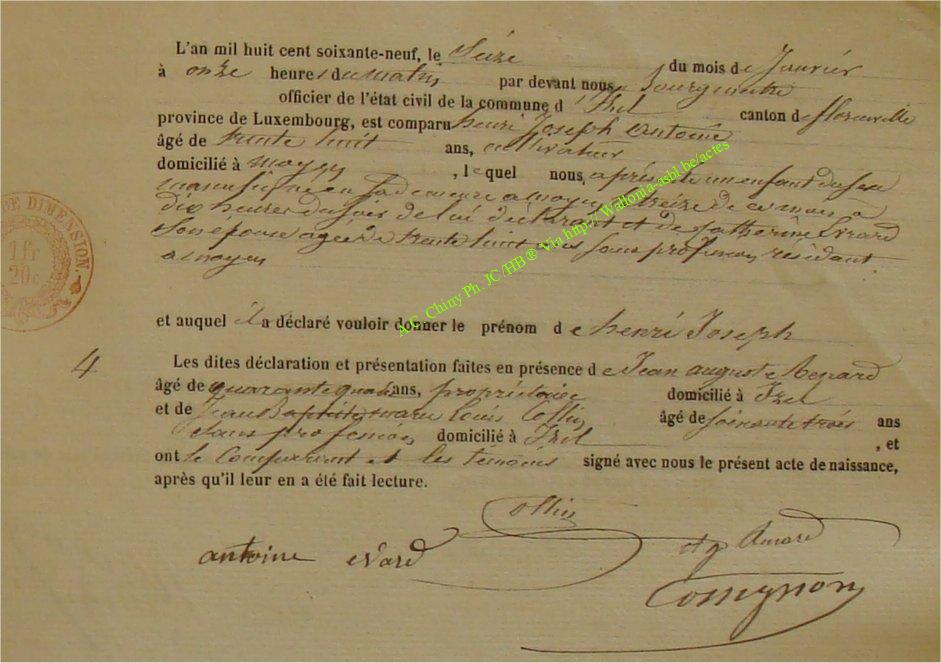 L'an mil huit cent soixante-neuf, le Seize du mois de Janvier
à onze heures du matin par devant nous Bourgmestre
officier de l'état civil de la commune d'Izel canton de florenville
province de Luxembourg, est comparu henri Joseph antoine
âgé de trente huit ans, cultivateur
domicilié à moyen, lequel nous a présenté un enfant du sexe
masculin né en sa demeure a moyen treize de ce mois a
dix heures du soir de lui déclarant et de Catherine Evrard
Son épouse agée de trente huit ans sans profession, résidant
a moyen
et auquel il a déclaré vouloir donner le prénom de henri Joseph
4
Les dites déclaration et présentation faites en présence de Jean auguste
âgé de quarante quatre ans, propriétaire domicilié à Izel
et de Jean Baptiste marie Louis Collin âgé de soixante trois ans
Sans profession domicilié à Izel, et
ont le Comparant et les témoins signé avec nous le présent acte de naissance,
après qu'il leur en a été fait lecture.
Collin
antoine evard
DE DIMENSION.
1 fr
20c
A.C. Chiny Ph. JC /HB® Via http:// Wallonia-asbl.be/actes